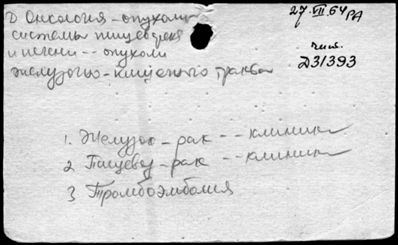 Д Онкология - опухоли
системы пищевода
и печени -- опухоли
желудочно-кишечного тракта
27.VII.64
РА
чит.
Д31393
1. Желудок - рак -- клиника
2 Пищевод - рак -- клиника
3 Тромбоэмболия